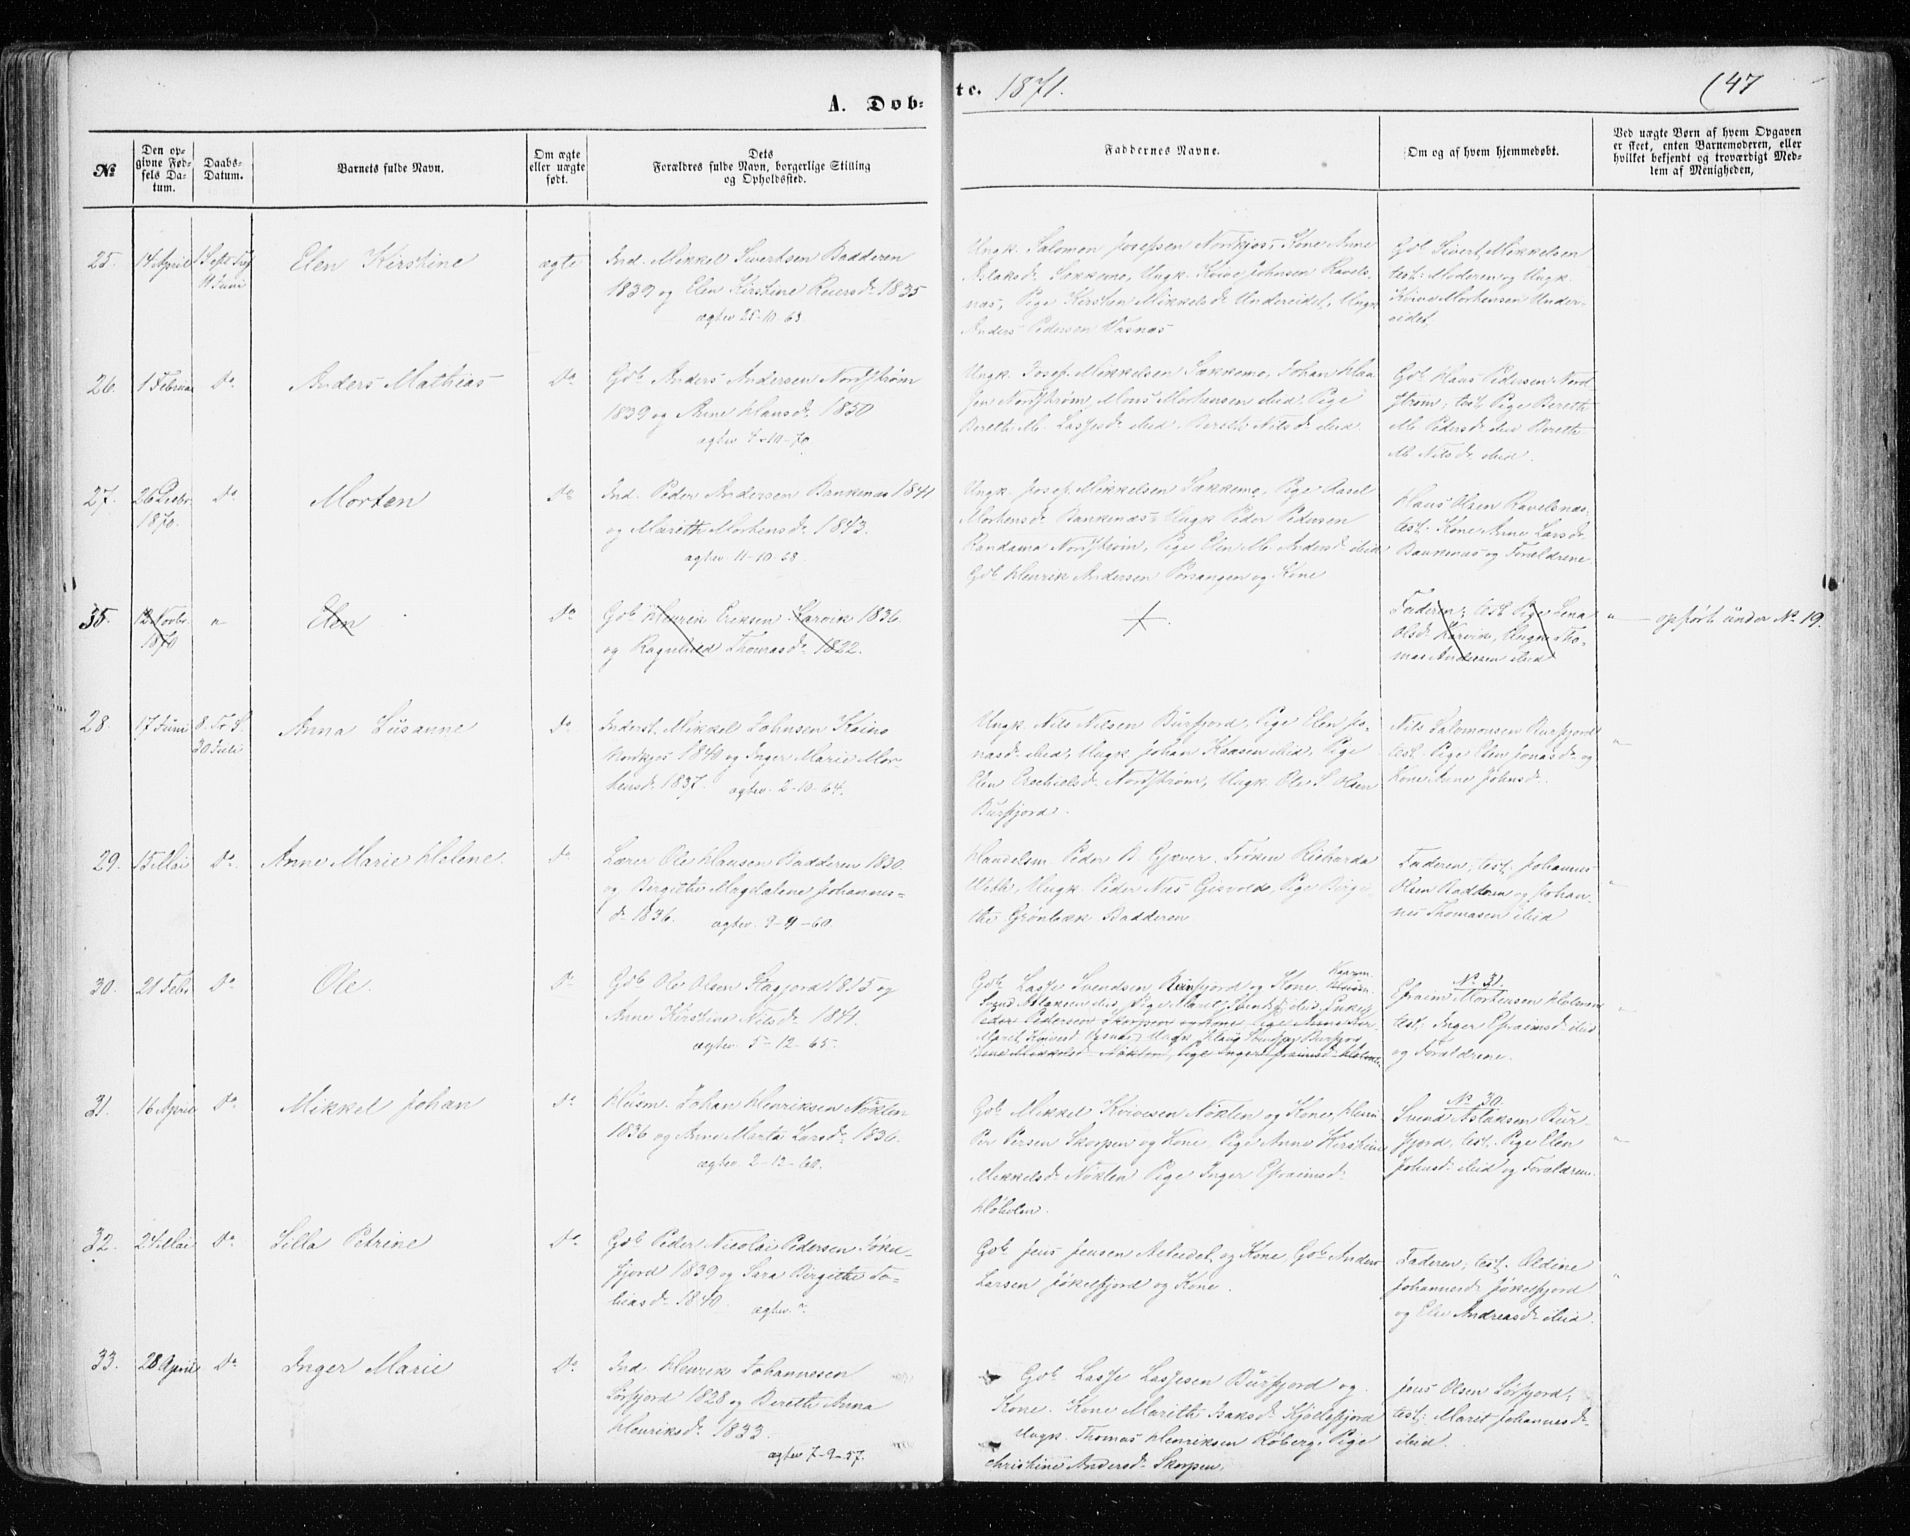 A. Døb-
te. 1871.
(47
№
Den op-
givne Fød-
sels Da-
tum.
Daabs-
Datum.
Barnets fulde Navn.
Om ægte
eller uægte
født.
Dets
Forældres fulde Navn, borgerlige Stilling
og Opholdssted.
Faddernes Navne.
Om og af hvem hjemmedøbt.
Ved uægte Børn af hvem Opgaven
er skeet, enten Barnemoderen, eller
hvilket bekjendt og troværdigt Med-
lem af Menigheden,
25. 14 April
11 Juni
Elen Kirstine
ægte
Ind. Mikkel Sivertsen Badderen
1839 og Elen Kirstine Reiersdr 1835
ægtev 25-10-63.
Ungk. Salomon Josefsen Nordkjos, Kone Anne
Aslaksdr Sækkemo, Ungk. Koive Johnsen Ravels-
nas, Pige Kirsten Mikkelsdr Undereidet, Ungk
Anders Pedersen Vasnas
Gdb Sivert Mikkelsen
test: Moderen og Ungk.
Koive Mortensen Under-
eidet.
26. 1 Februar Do
Anders Mathias
Do
Gdb Anders Andersen Nordstrøm
1839 og Anne Hansdr 1850
ægtev 4-10-70.
Ungk. Josef Mikkelsen Sækkemo, Johan Han
sen Nordstrøm, Mons Mortensen ibid, Pige
Bereth M. Lassesdr ibid, Bereth Nilsdr ibid.
Gdb Hans Pedersen Nord
strøm; test. Pige Bereth
M. Pedersdr ibid Bereth
M. Nilsdr ibid.
27. 26 Decbr Do
1870.
Morten
Do
Ind. Peder Andersen Bankenas 1841
og Mareth Mortensdr 1843.
ægtev. 11-10-68.
Ungk. Josef Mikkelsen Sækkemo, Pige Karel
Mortensdr Bankenas, Ungk Peder Pedersen
Randama Nordstrøm, Pige Elen M. Andersdr ibid
Gdb Henrik Andersen Porsangen og Kone
Hans Olsen Ravelsnas,
test. Kone Anne Larsdr
Bankenas og Forældrene
35. 12 Novbr "
1870
Elen
Do
Gdb Henrik Eriksen Karvik 1836.
og Ragnhild Thomasdr 1822.
Faderen; test Pige Lena
Olsdr Karvik, Ungk. Tho-
mas Andersen ibid
" — opført under No 19.
28. 17 Juni 8. Tr S.
30 Juli
Anna Susanne
Do
Inderst. Mikkel Johnsen Kaino
Nordkjos 1840 og Inger Marie Mor-
tensdr 1837. ægtev. 2-10-64.
Ungk. Nils Nilsen Burfjord, Pige Elen Jo-
nasdr ibid, Ungk Johan Isaksen ibid, Pige
Elen Esechielsdr Nordstrøm, Ungk. Ole S. Olsen
Burfjord.
Nils Salomonsen Burfjord
test. Pige Elen Jonasdr og
Kone Anne Johnsdr.
"
29. 15 Mai Do
Anne Marie Helene.
Do
Lærer Ole Hansen Badderen 1830.
og Birgithe Magdalene Johannes-
dr 1836. ægtev. 9-9-60.
Handelsm. Peder B. Gjæver. Frøken Richarda
Weth, Ungk. Peder Nils Gisvold, Pige Birgi-
the Grønbæk Badderen
Faderen; test. Johannes
Olsen Badderen og Johan-
nes Thomasen ibid
"
30. 21 Febr Do
Ole
Do
Gdb Ole Olsen Stagfjord 1815 og
Anne Kirstine Nilsdr 1841.
ægtev. 5-12-65.
Gdb Lasse Svendsen Burfjord og Kone Karen
No 31.
Efraim Mortensen Holmen
test: Inger Efraimsdr ibid
og Forældrene.
"
31. 16 April Do
Mikkel Johan
Do
Husm. Johan Henriksen Nøklen
1836 og Anne Marta Larsdr 1836.
ægtev. 2-12-60.
Gdb Mikkel Koivesen Nøklen og Kone, Henri
Per Persen Skorpen og Kone, Pige Anne Kirstine
Mikkelsdr Nøklen Pige Inger Efraimsdr
Holmen.
No 30.
Svend Aslaksen Bur-
fjord, test. Pige Elen
Johnsdr ibid og Forældrene.
"
32. 24 Mai Do
Silla Petrine
Do
Gdb Peder Nicolai Pedersen Jøkel-
fjord 1839 og Sara Birgithe To-
biasdr 1840. ægtev. ?
Gdb. Jens Jensen Alteidet og Kone, Gdb Anders
Larsen Jøkelfjord og Kone.
Faderen; test. Oldine
Johannesdr Jøkelfjord
og Elen Andreasdr ibid.
"
33. 28 April Do
Inger Marie
Do
Ind. Henrik Johannesen
Sørfjord 1828 og Bereth Anna
Henriksdr 1833.
ægtev 7-9-57.
Gdb Lasse Lassesen Burfjord og
Kone. Kone Mareth Isaksdr Kjølsfjord
Ungk. Thomas Henriksen Røberg, Pige
Christine Andersdr Skorpen.
Jens Olsen Sørfjord;
test: Maret Johannesdr
ibid.